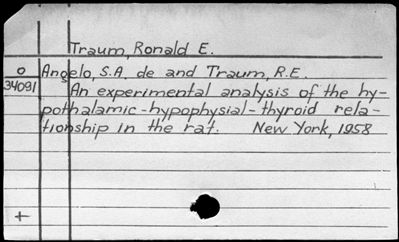 Traum, Ronald E.
o Angelo, S.A. de and Traum, R.E.
34091 An experimental analysis of the hy-
pothalamic-hypophysial-thyroid rela-
tionship in the rat. New York, 1958
+